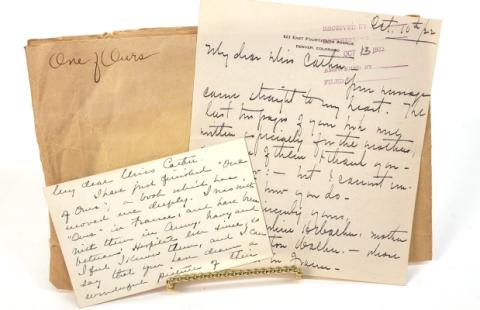 One of Ours
Oct. 10th/22
RECEIVED BY
EAST FOURTEENTH AVENUE
DENVER, COLORADO
OCT 13 1922
BY
FILED
My dear Miss Cather:
Your message
came straight to my heart. The
last two pages of your book only
written especially for the mothers,
of them I thank you -
but I cannot
how you do.
Sincerely yours,
mother
whose
in France -
My dear Miss Cather.
I have just finished "One
of Ours"; a book which has
moved me deeply. I was with
"Ours" in France, and have been
with them in Army, Navy and
Veterans' Hospitals ever since; so
I feel I know them, and I can
say that you have drawn a
wonderful picture of them